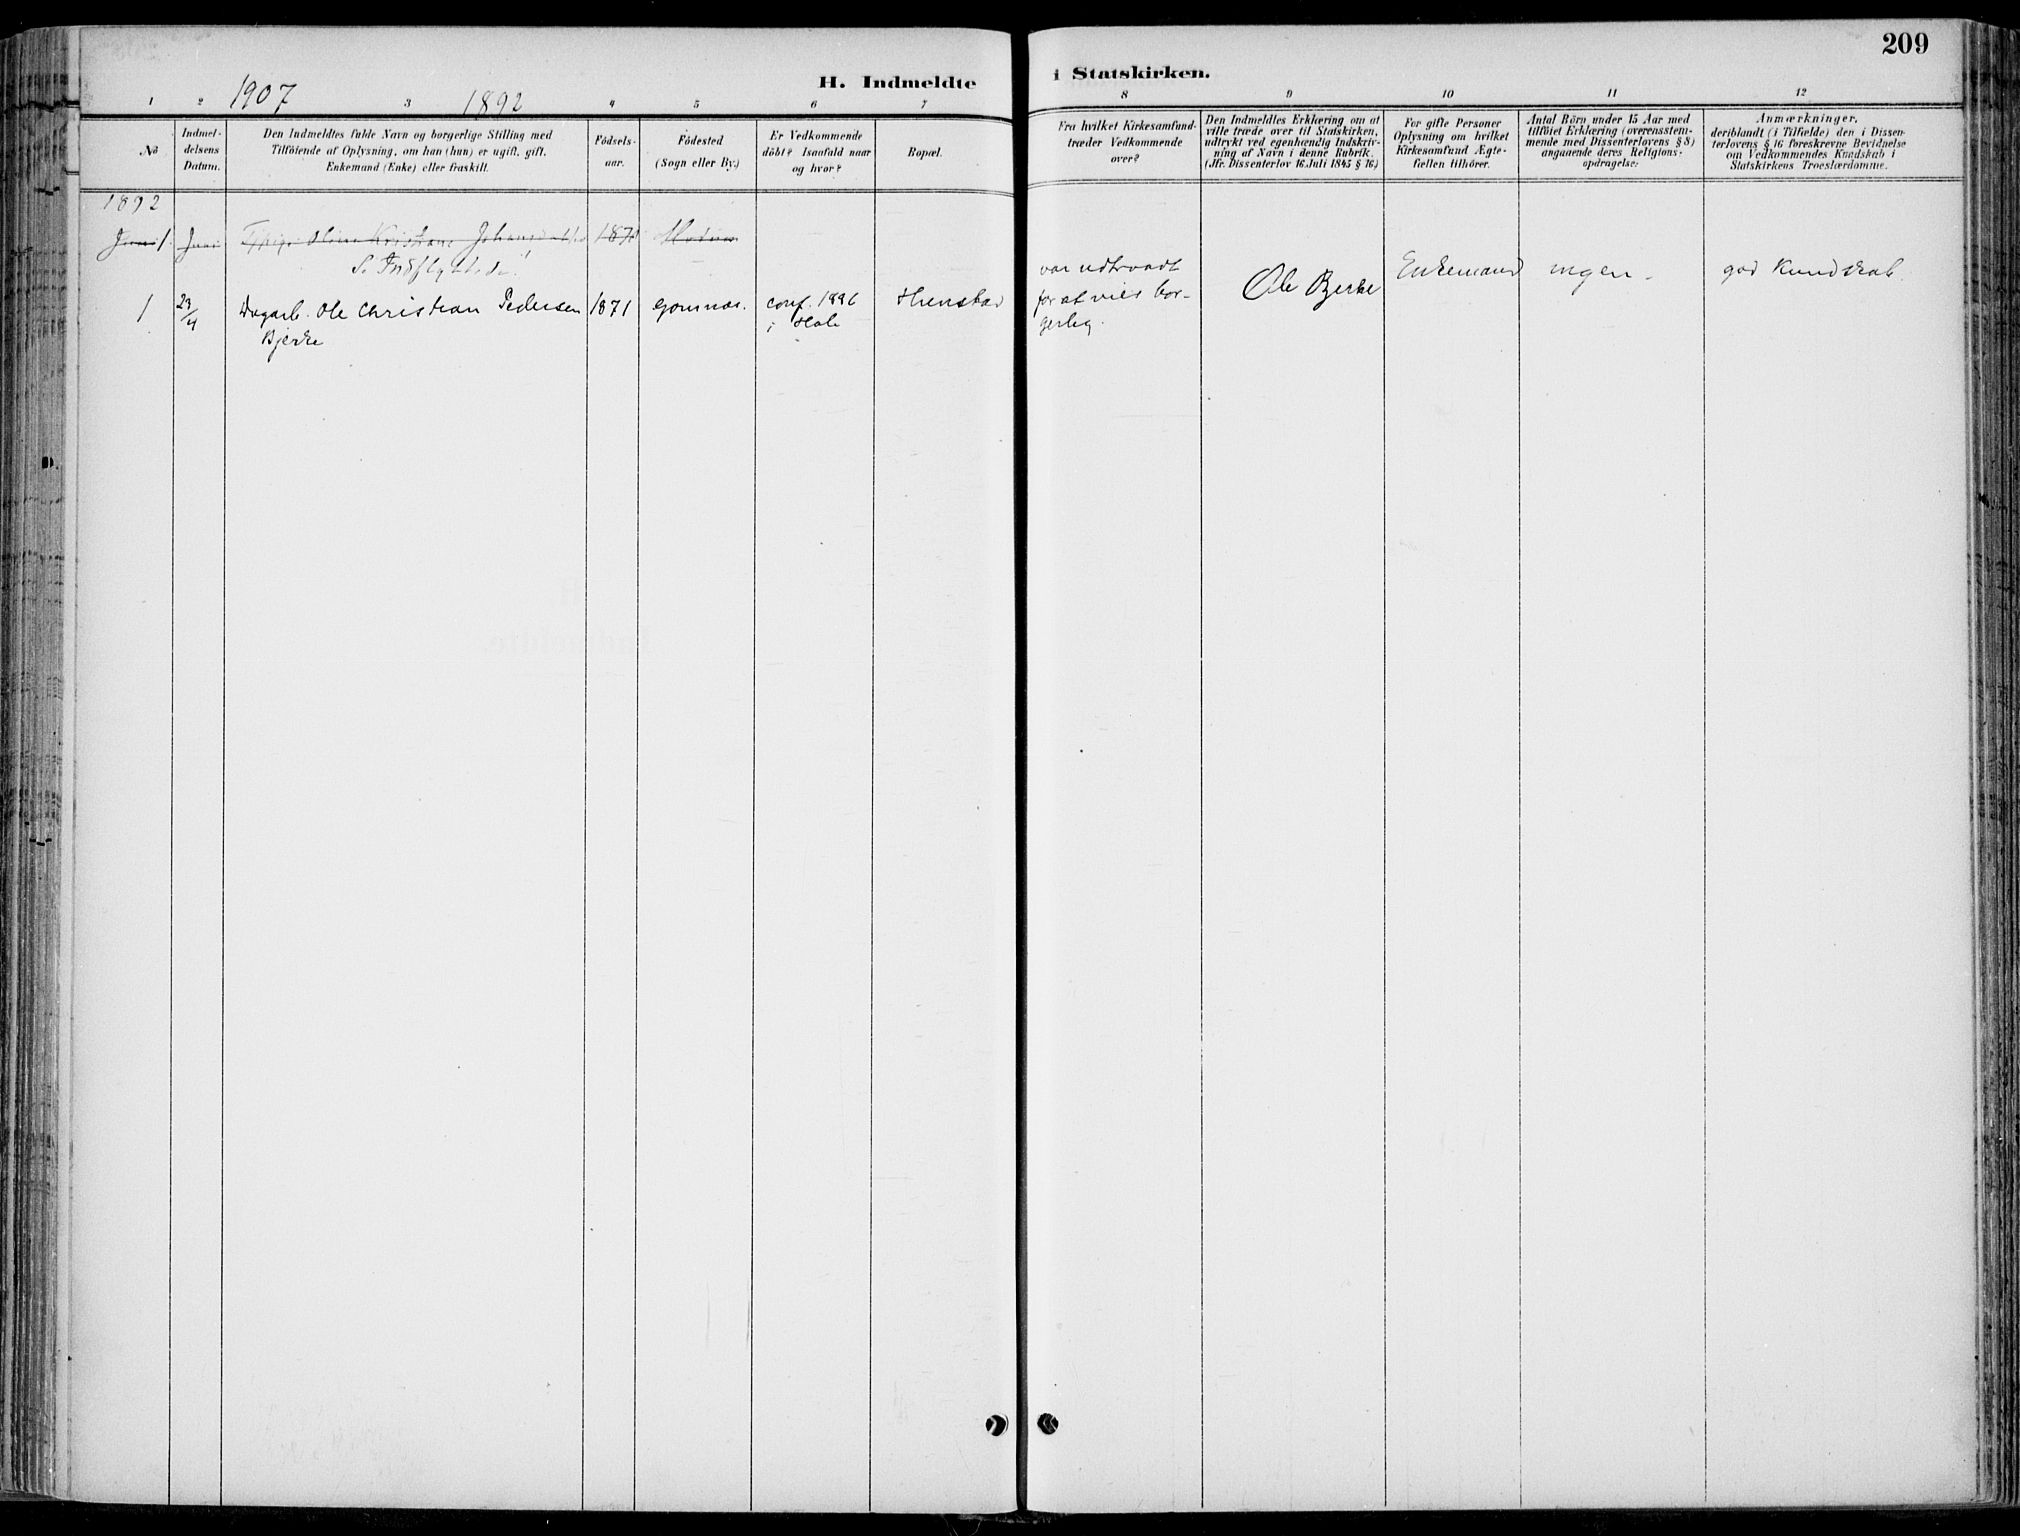 209
H. Indmeldte i Statskirken.
1907
1892
1 2 3 4 5 6 7 8 9 10 11 12
No
Indmel-
delsens
Datum.
Den Indmeldtes fulde Navn og borgerlige Stilling med
Tilföiende af Oplysning, om han (hun) er ugift, gift,
Enkemand (Enke) eller fraskilt.
Födsels-
aar.
Födested
(Sogn eller By.)
Er Vedkommende
döbt? Isaafald naar
og hvor?
Bopæl.
Fra hvilket Kirkesamfund
træder Vedkommende
over?
Den Indmeldtes Erklæring om at
ville træde over til Statskirken,
udtrykt ved egenhændig Indskriv-
ning af Navn i denne Rubrik.
(Jfr. Dissenterlov 16 Juli 1845 § 16)
For gifte Personer
Oplysning om hvilket
Kirkesamfund Ægte-
fællen tilhörer.
Antal Börn under 15 Aar med
tilföiet Erklæring (overensstem-
mende med Dissenterlovens § 8)
angaaende deres Religions-
opdragelse:
Anmærkninger,
deriblandt (i Tilfælde) den i Dissen-
terlovens § 16 foreskrevne Bevidnelse
om Vedkommendes Kundskab i
Statskirkens Troeslærdomme.
1892
Juni 1. Juni Oline Kristiane 187 Modum
S. Indflyttede!
1 23/4 Dagarb. Ole Christian Pedersen 1871 Gomnæs. conf. 1886 Hensstad
Bjerke
i Hole
var udtraadt
for at vies bor-
gerlig.
Ole Bjerke
Enkemand
ingen -
god Kundskab.